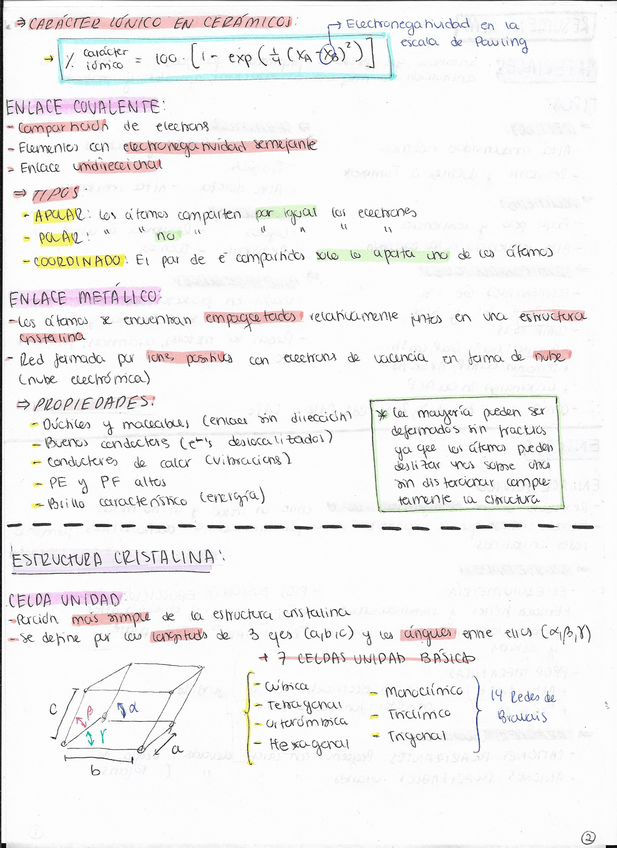 ⇒ CARÁCTER IÓNICO EN CERÁMICOS:
→ Electronegatividad en la
escala de Pauling
→ % carácter iónico = 100 · [1 - exp(1/4 (XA - XB)²)]
ENLACE COVALENTE:
- Compartición de electrons
- Elementos con electronegatividad semejante
- Enlace unidireccional
⇒ TIPOS:
- APOLAR: los átomos comparten por igual los electrones
- POLAR: " no " " " " "
- COORDINADO: El par de e⁻ compartidos solo lo aporta uno de los átomos
ENLACE METÁLICO:
- Los átomos se encuentran empaquetados relativamente juntos en una estructura
cristalina
- Red formada por iones positivos con electrons de valencia en forma de nube
(nube electrónica)
⇒ PROPIEDADES:
- Dúctiles y maleables (enlaces sin dirección)
- Buenos conductors (e⁻s deslocalitzados)
- Conductores de calor (vibracions)
- PE y PF altos
- Brillo característico (energía)
* La mayoría pueden ser
deformados sin fractura
ya que los átomos pueden
deslizar unos sobre otros
sin distorsionar comple-
tamente la estructura
ESTRUCTURA CRISTALINA:
CELDA UNIDAD:
- Porción más simple de la estructura cristalina
- Se define por las longitudes de 3 ejes (a,b,c) y los ángulos entre ellos (α,β,γ)
+ 7 CELDAS UNIDAD BÁSICAS
- Cúbica
- Tetragonal
- Ortorómbica
- Hexagonal
- Monoclínico
- Triclínico
- Trigonal
14 Redes de
Bravais
c
β
α
γ
a
b
2